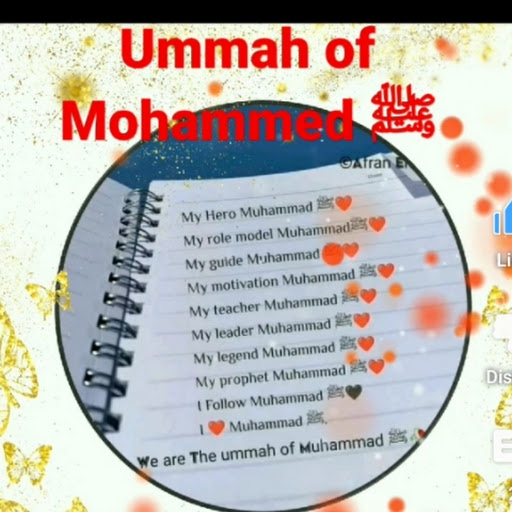 Ummah of
Mohammed ﷺ
©Afran E
My Hero Muhammad ﷺ❤️
My role model Muhammad ﷺ❤️
My guide Muhammad ﷺ❤️
My motivation Muhammad ﷺ❤️
My teacher Muhammad ﷺ❤️
My leader Muhammad ﷺ❤️
My legend Muhammad ﷺ❤️
My prophet Muhammad ﷺ❤️
I Follow Muhammad ﷺ🖤
I ❤️ Muhammad ﷺ.
We are The ummah of Muhammad ﷺ🥀
Li
Dis